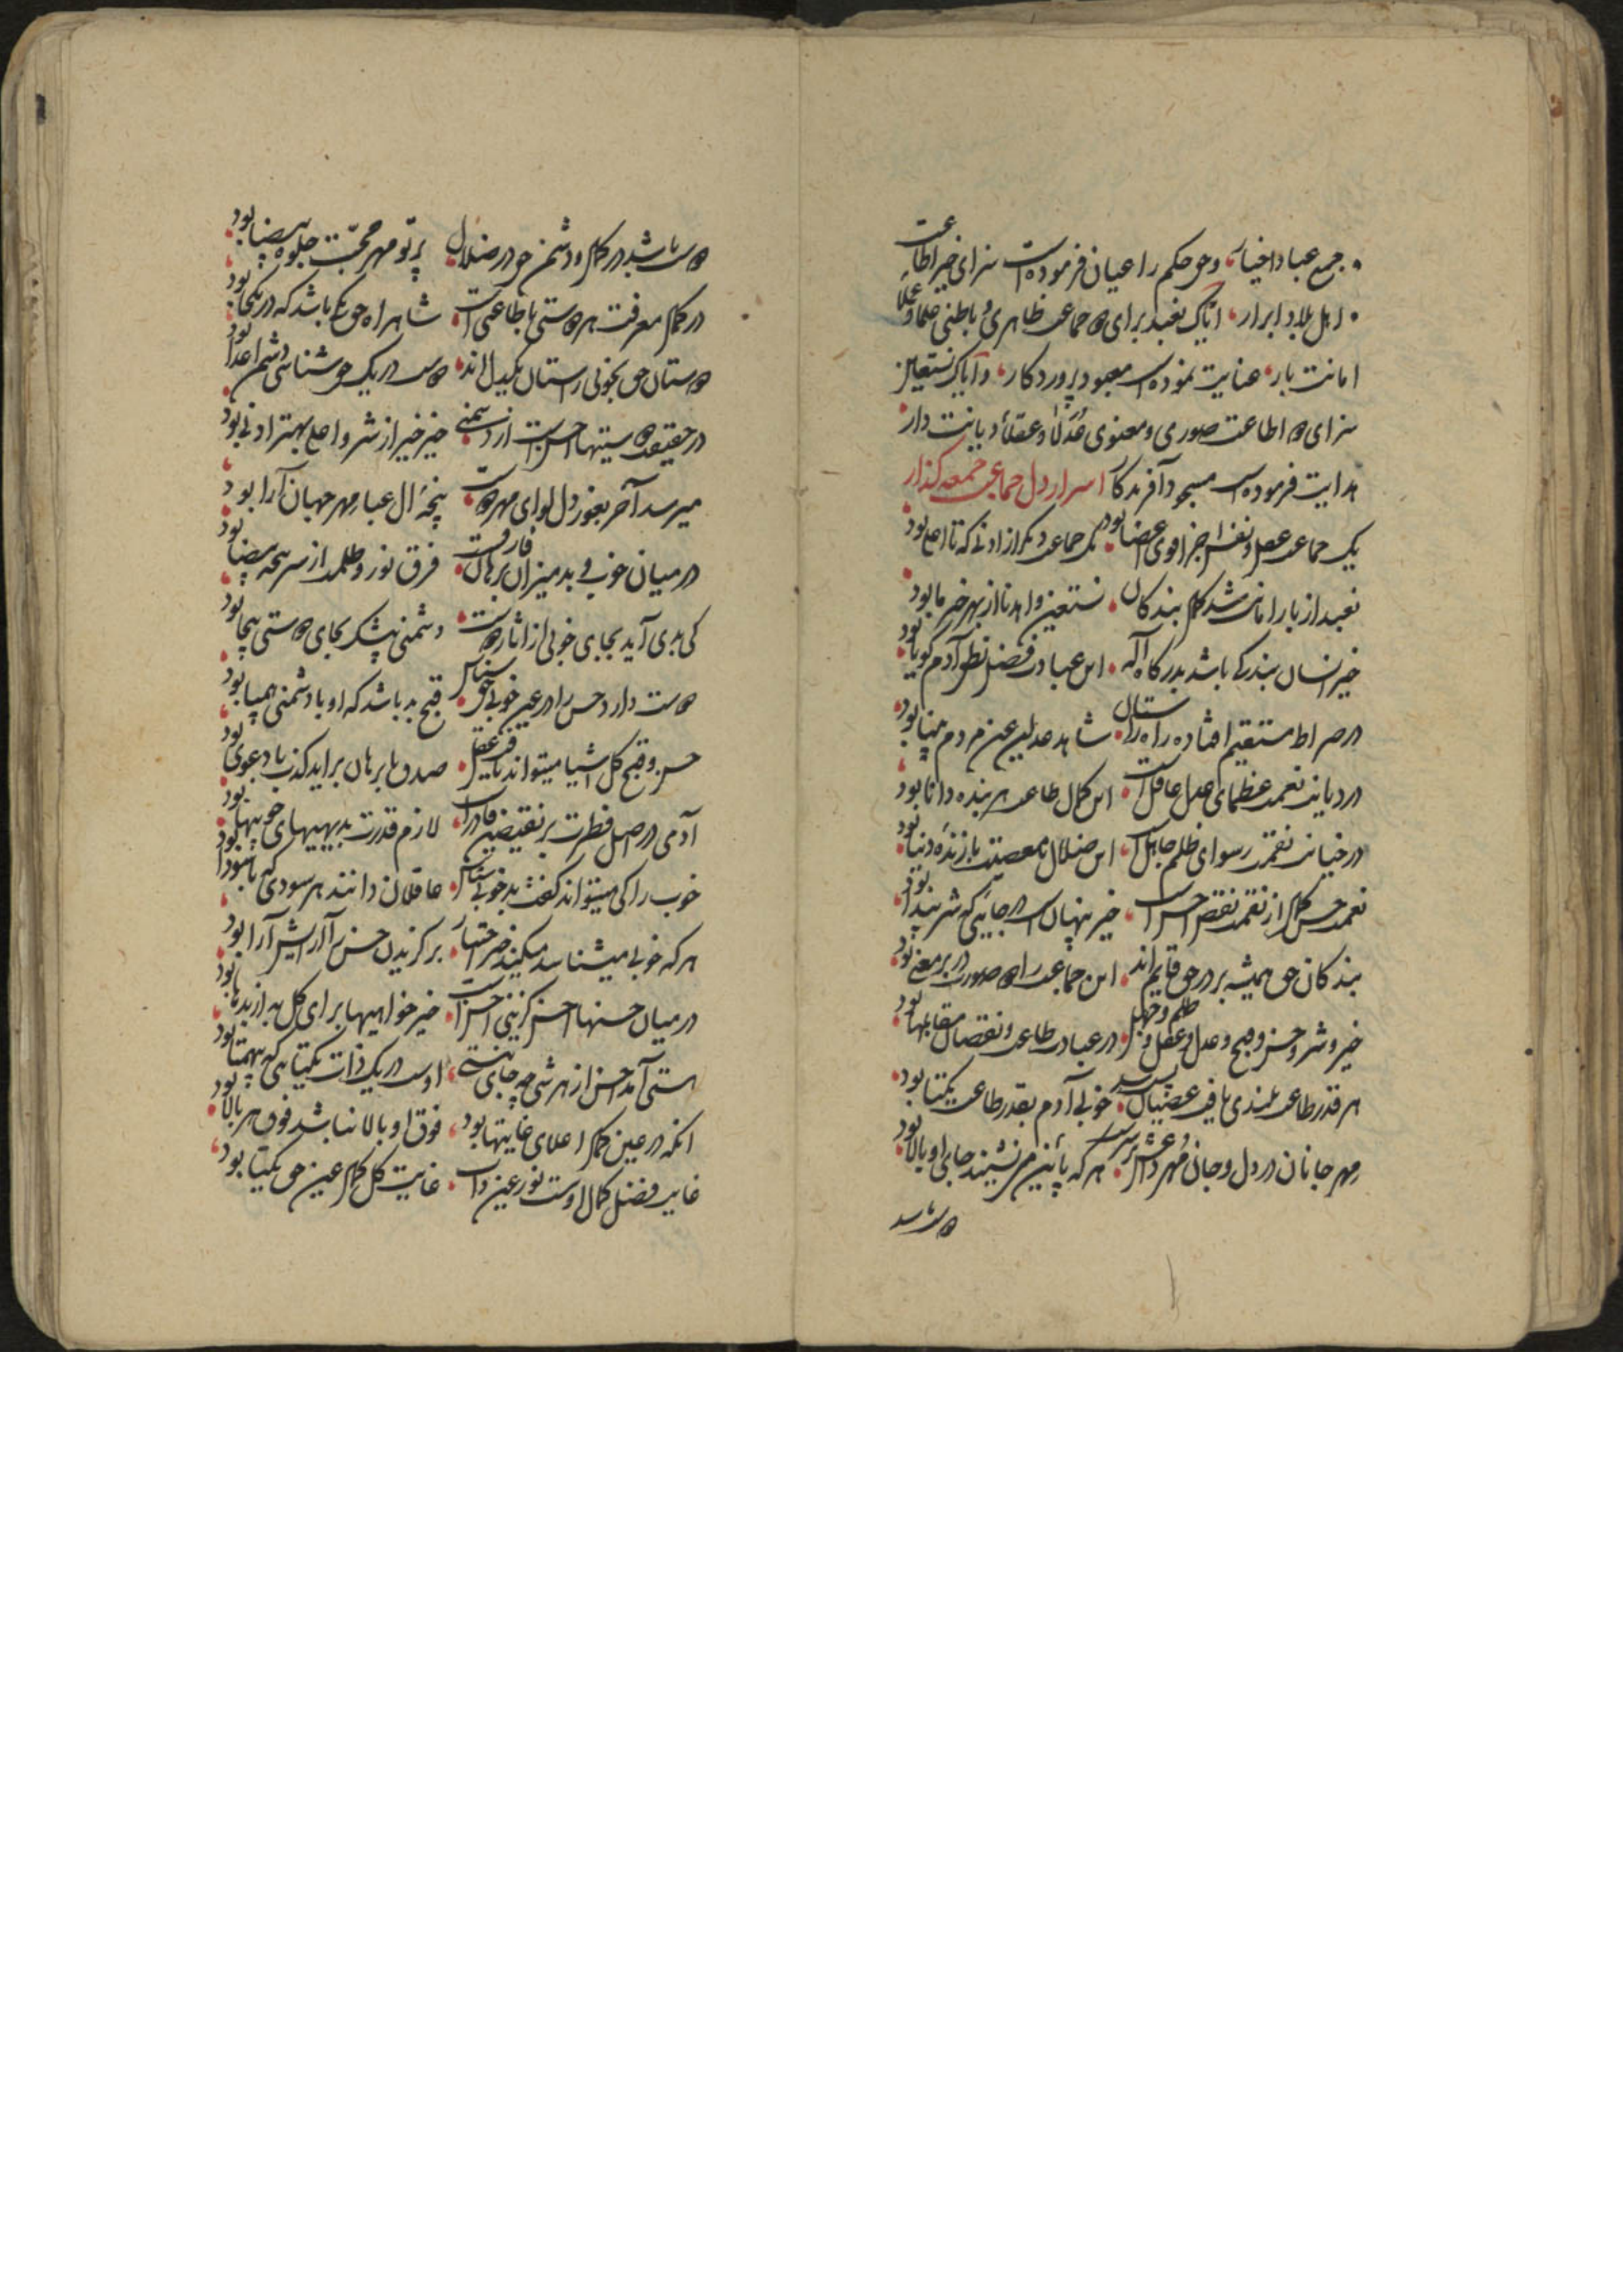 جمع عباد اخیار، و حق حکم را عیان فرموده است سزای خیر اطاعت
اهل بلاد ابرار، ایاک نعبد برای دو جماعت ظاهری و باطنی علما و عملا
امانت بار، عنایت نموده است معبود پروردکار، و ایاک نستعین
سزای دو اطاعت صوری و معنوی عدلا و عقلا دیانت دار
هدایت فرموده است مسجود آفریدکار اسرار دل جماعتی جمعه کذار
یک جماعت عقل و نفس اجزا قوی اعضا بود یک جماعت دیکر از ادنی که تا اعلی بود
نعبد از بار امانت شد کمال بندکان نستعین و اهدنا از بهر خیر ما بود
خیر انسان بندکی باشد بدرکاه اله این عبادت فضل نطق آدم کویا بود
در صراط مستقیم افتاده راه راستان شاهد عدلین عین مردم بینا بود
در دیانت نعمت عظمای عدل عاقل است این کمال طاعت هر بنده دانا بود
در خیانت نقمت رسوای ظلم جاهل است این ضلال معصیت بازنده دنیا بود
نعمت حسن کمال از نقمت نقص احسن است خیر پنهان است در جائیکه شر پیدا بود
بندکان حق همیشه بر در حق قایم اند این جماعت را دو صورت در بر معنی بود
خیر و شر و حسن و قبح و عدل و عقل و ظلم و جهل در عبادت طاعت و نقصان مقابلها بود
هر قدر طاعت بلندی یافت عصیان پست شد خوبی آدم بقدر طاعت یکتا بود
مهر جانان در دل و جانی مهر و عرش برتر است هر که پائین تر نشیند جای او بالا بود
دوست باشد
دوست باشد در کمال و دشمن حق در ضلال پرتو مهر محبت جلوه بیضا بود
در کمال معرفت هر دوستی با طاعتی است شاهراه حق یکی باشد که در یکجا بود
دوستان حق بخوبی راستان یکدل اند دوست در یک حق شناسی دشمن اعدا بود
در حقیقت دوستیها احسن است از دشمنی خیر خیر از شر و اعلی بهتر از ادنی بود
میرسد آخر بغور دل لوای مهر دوست پنجه آل عبا مهر جهان آرا بود
در میان خوب و بد میزان برهان فارق است فرق نور و ظلمت از سر پنجه بیضا بود
کی بدی آید بجای خوبی از آثار دوست دشمنی بیشک بجای دوستی بیجا بود
دوست دارد حسن را در عین خوبی حق شناس قبح بد باشد که او با دشمنی همپا بود
حسن و قبح کل اشیا میتواند یافت عقل صدق با برهان برآید کذب با دعوی بود
آدمی در اصل فطرت بر نقیضین قادر است لازم قدرت بدیهیهای خوبیها بود
خوب را کی میتواند کفت بد خوبی شناس عاقلان دانند هر سودی که با سودا بود
هر که خوبی میشناسد میکند خیر اختیار برکزیدن حسن را آرایش آرا بود
در میان حسنها احسن کزینی احسن است خیر خواهیها برای کل به از بدها بود
هستی آمد احسن از هر شی چه جای نیستی اوست در یک ذات یکتایی که بیهمتا بود
آنکه در عین کمال اعلای غایتها بود فوق او بالا نباشد فوق هر بالا بود
غایت فضل کمال اوست نور عین ذات غایت کل کمال عین حق یکتا بود